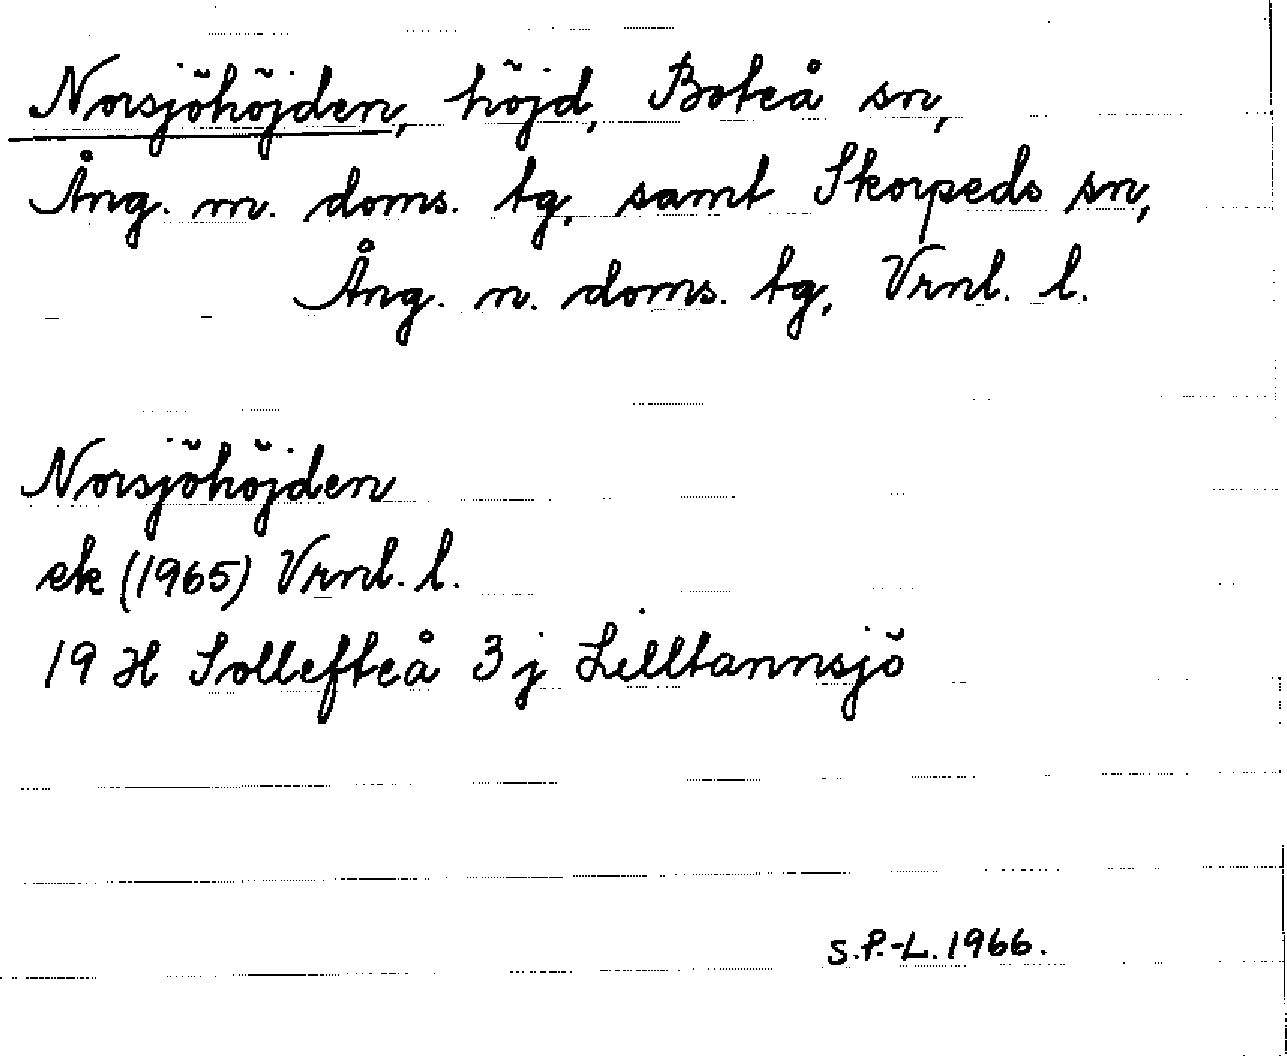 Norsjöhöjden, höjd, Boteå sn,
Ång. m. doms. tg, samt Skorpeds sn,
Ång. n. doms. tg, Vrnl. l.
Norsjöhöjden
ek (1965) Vrnl. l.
19 H Sollefteå 3 j Lilltannsjö
S.P.-L. 1966.